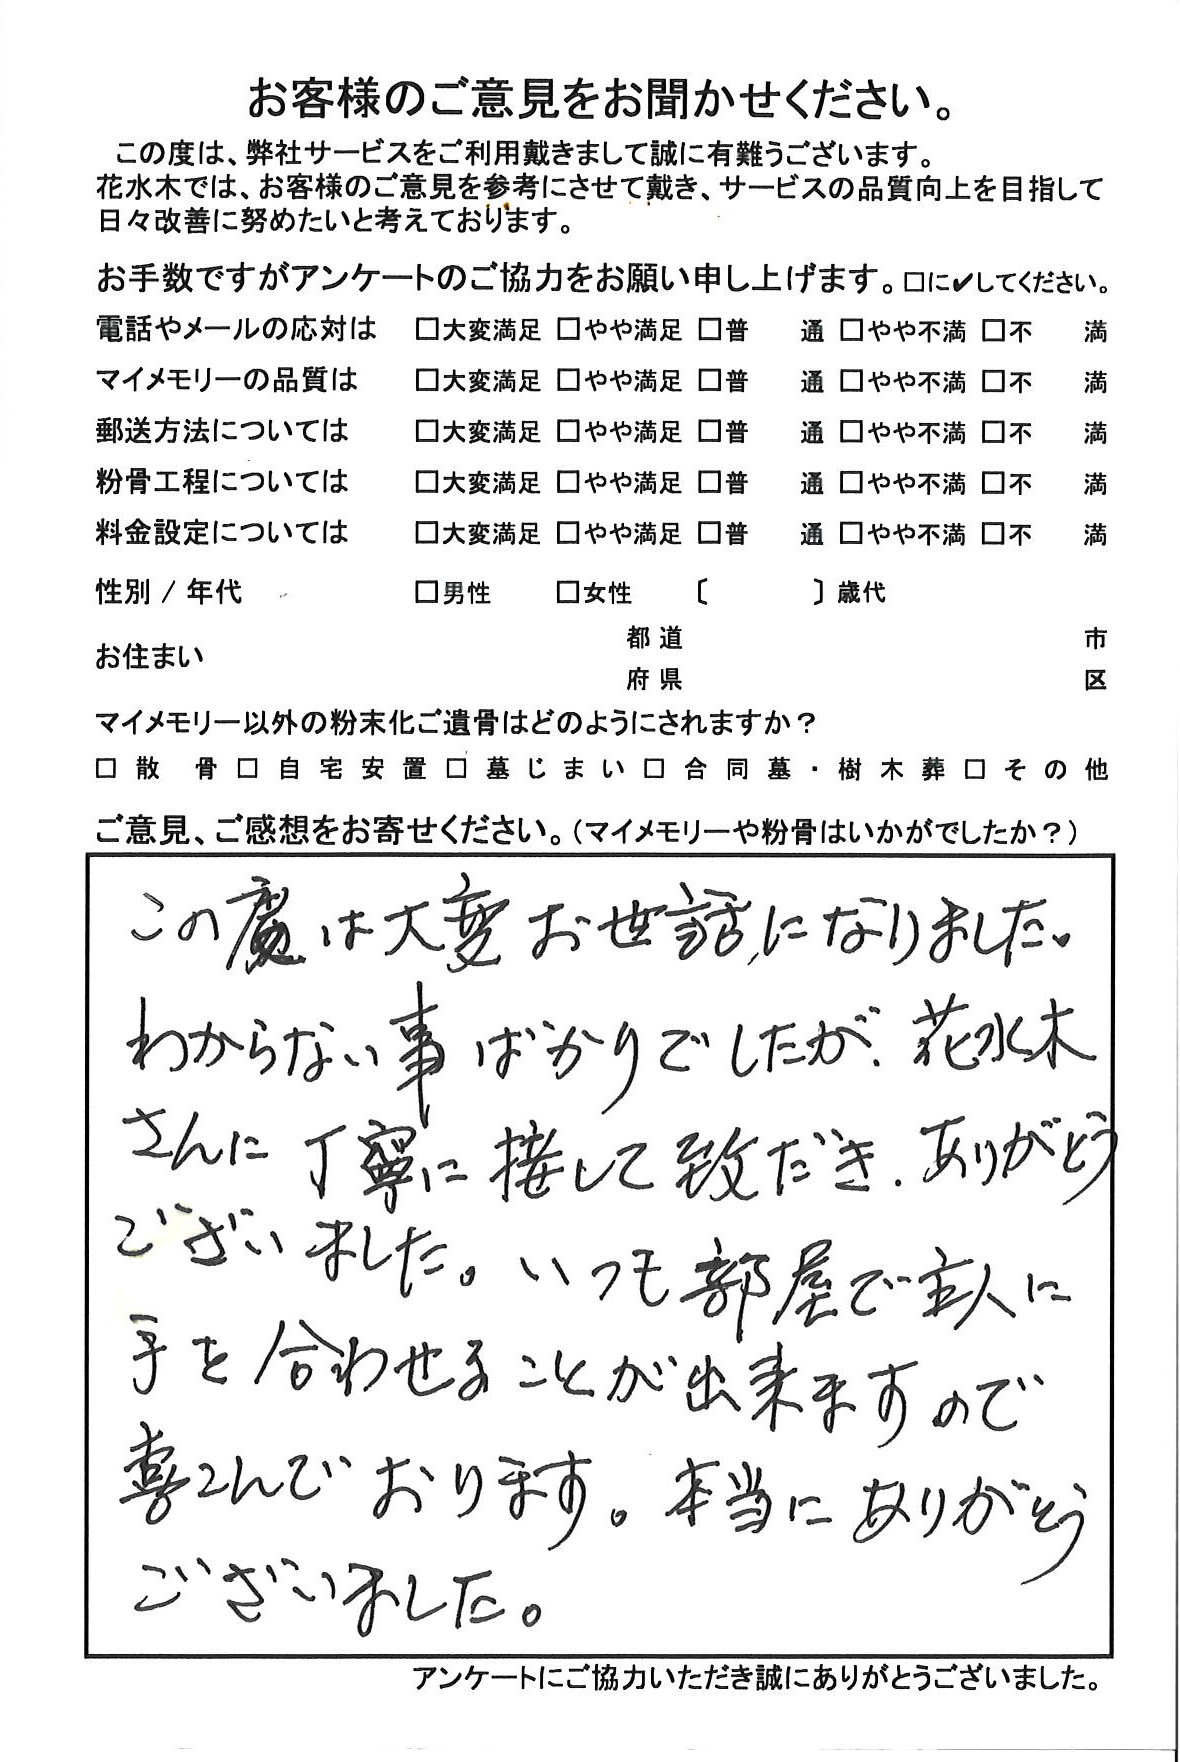 お客様のご意見をお聞かせください。
この度は、弊社サービスをご利用戴きまして誠に有難うございます。
花水木では、お客様のご意見を参考にさせて戴き、サービスの品質向上を目指して
日々改善に努めたいと考えております。
お手数ですがアンケートのご協力をお願い申し上げます。□に✔してください。
電話やメールの応対は □大変満足 □やや満足 □普 通 □やや不満 □不 満
マイメモリーの品質は □大変満足 □やや満足 □普 通 □やや不満 □不 満
郵送方法については □大変満足 □やや満足 □普 通 □やや不満 □不 満
粉骨工程については □大変満足 □やや満足 □普 通 □やや不満 □不 満
料金設定については □大変満足 □やや満足 □普 通 □やや不満 □不 満
性別 / 年代 □男性 □女性 〔 〕歳代
お住まい 都道 市
府県 区
マイメモリー以外の粉末化ご遺骨はどのようにされますか？
□散 骨 □自宅安置 □墓じまい □合同墓・樹木葬 □その他
ご意見、ご感想をお寄せください。（マイメモリーや粉骨はいかがでしたか？）
この度は大変お世話になりました。
わからない事ばかりでしたが、花水木
さんに丁寧に接して致だき、ありがとう
ございました。いつも部屋で主人に
手を合わせることが出来ますので
喜こんでおります。本当にありがとう
ございました。
アンケートにご協力いただき誠にありがとうございました。